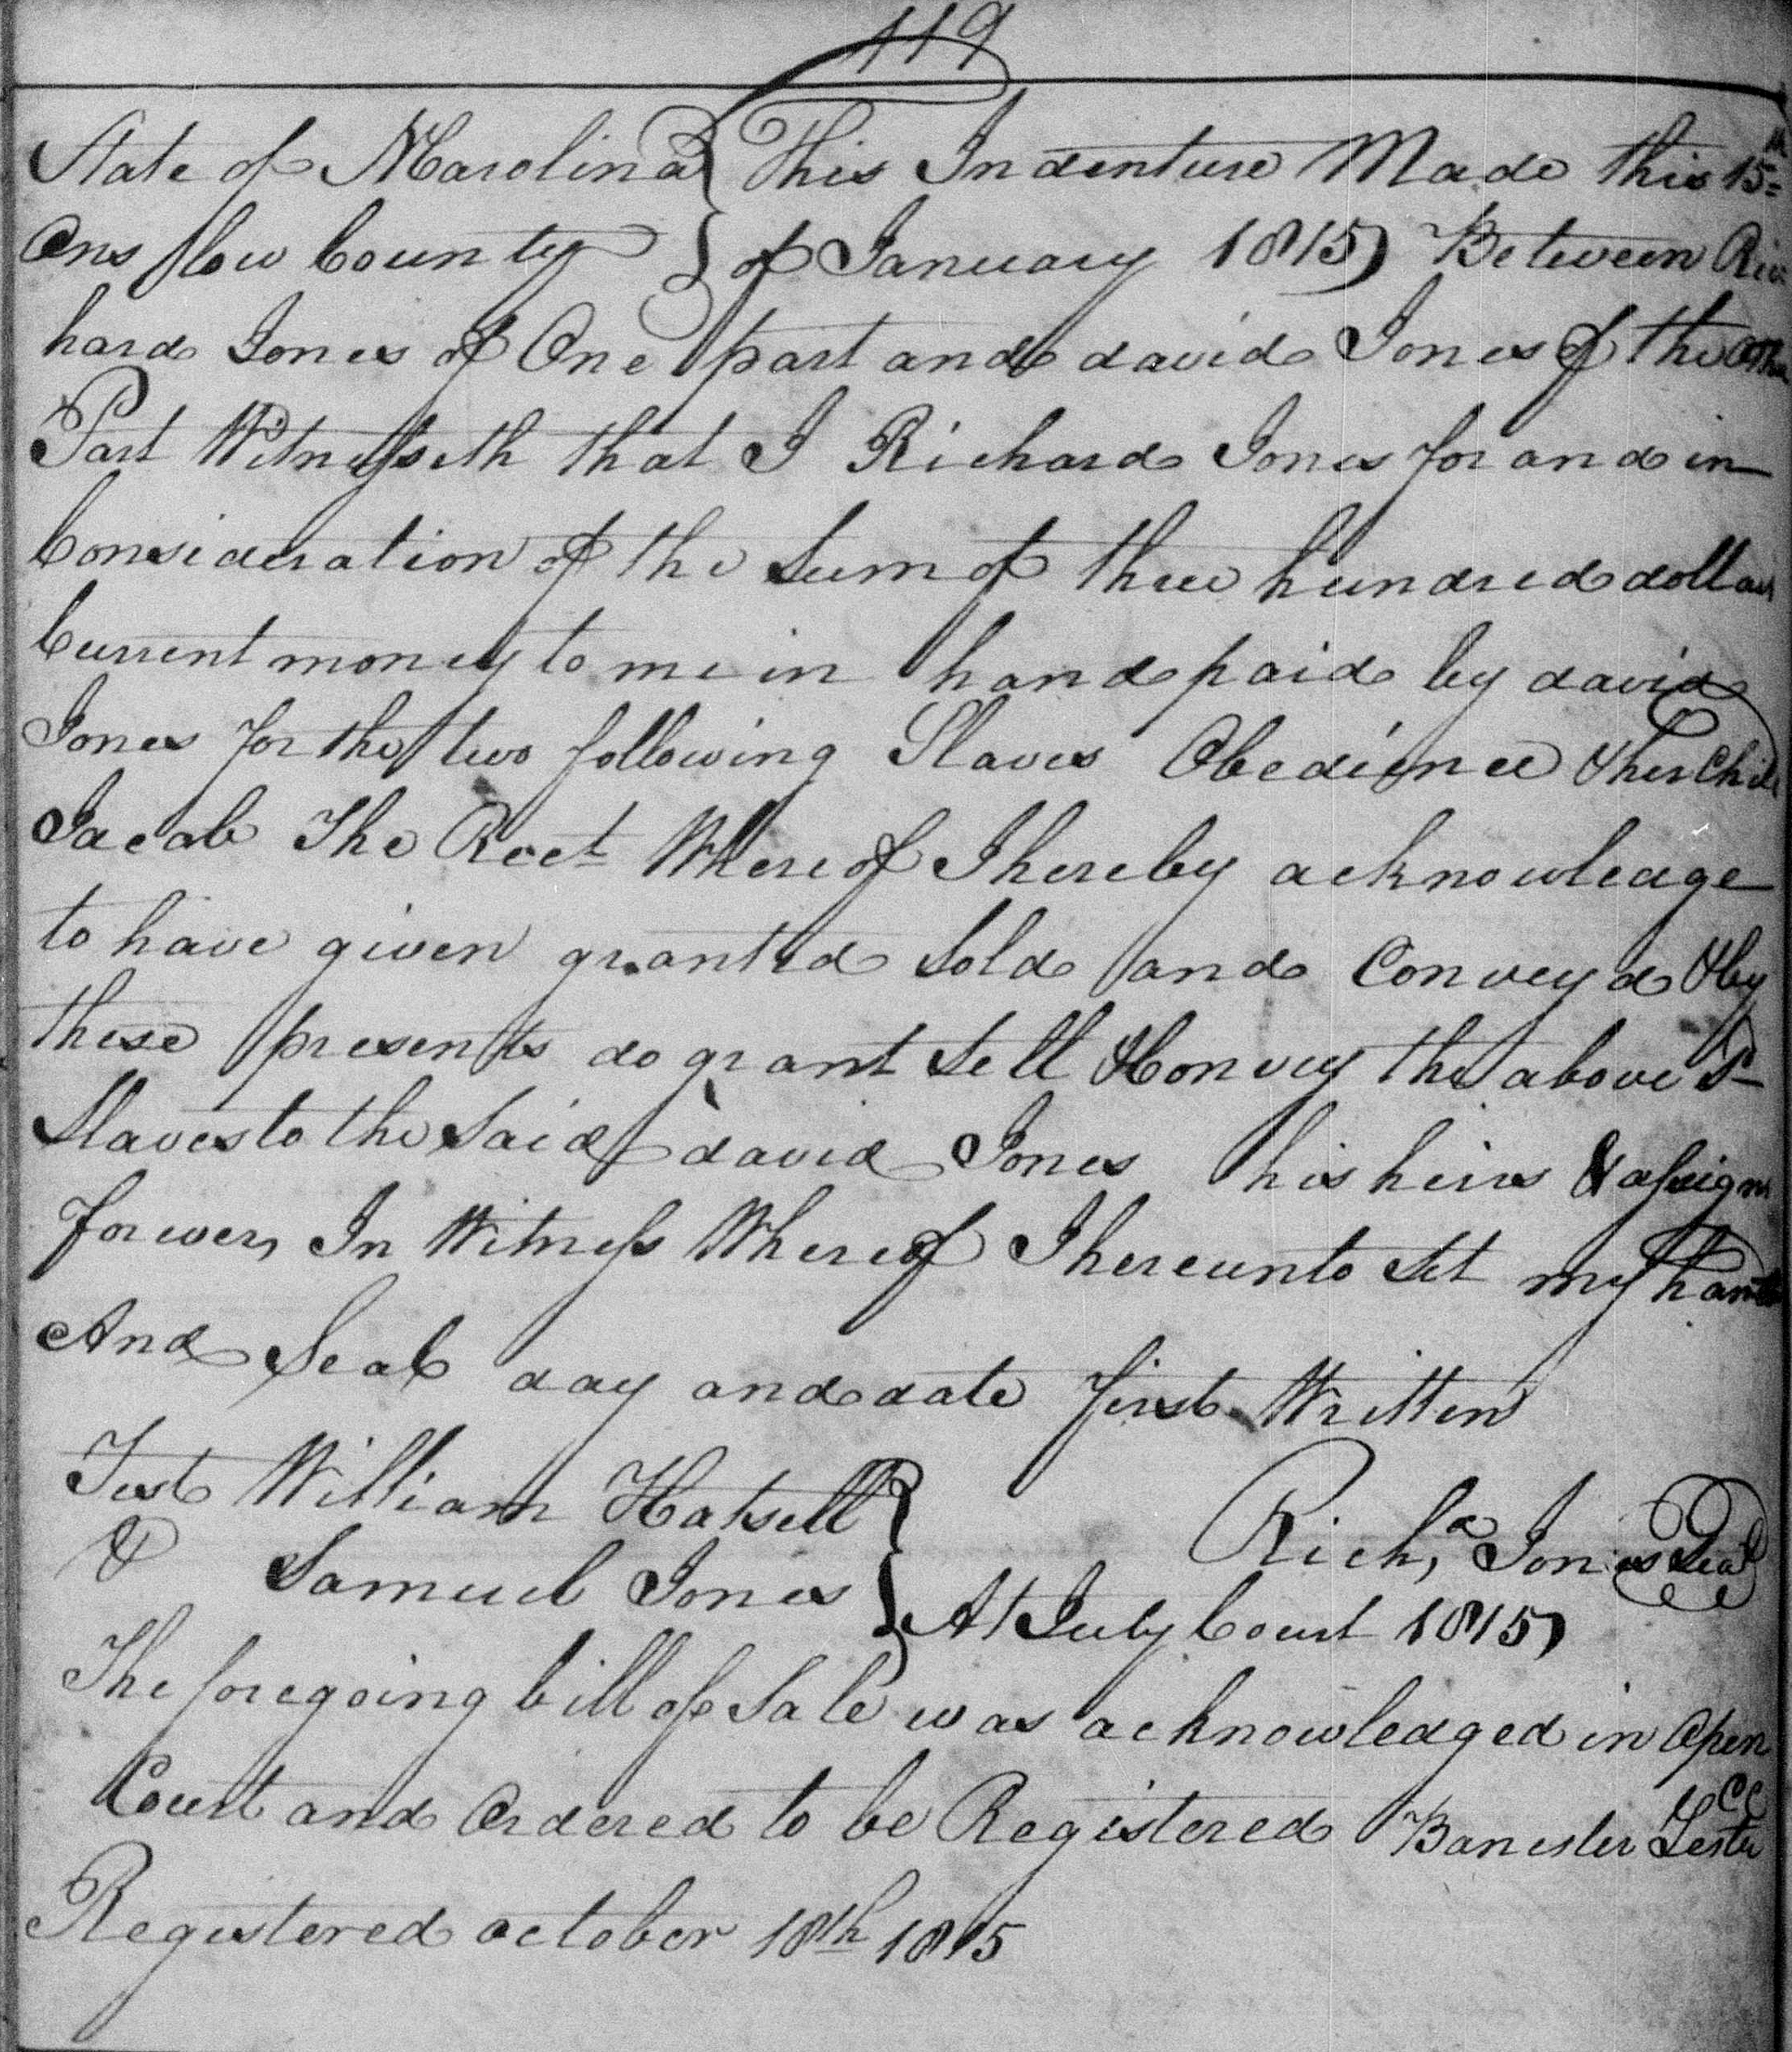 119
State of NCarolina } This Indenture Made this 15th
Onslow County } of January 1815 Between Ric
hard Jones of One part and david Jones of the other
Part Witnesseth that I Richard Jones for and in
Consideration of the Sum of three hundred dollars
Current money to me in hand paid by david
Jones for the two following Slaves Obedience & her Child
Jacob The Rect Whereof I hereby acknowledge
to have given granted Sold and Conveyd & by
these presents do grant Sell & Convey the above Sd
Slaves to the Said david Jones his heirs & assigns
forever, In Witness Whereof I hereunto Set my hand
And Seal day and date first Written
Test William Hatsell }
& Samuel Jones } Richd Jones Seal
At July Court 1815
The foregoing bill of Sale was acknowledged in Open
Court and Ordered to be Registered Banester Lester CC
Registered october 18th 1815